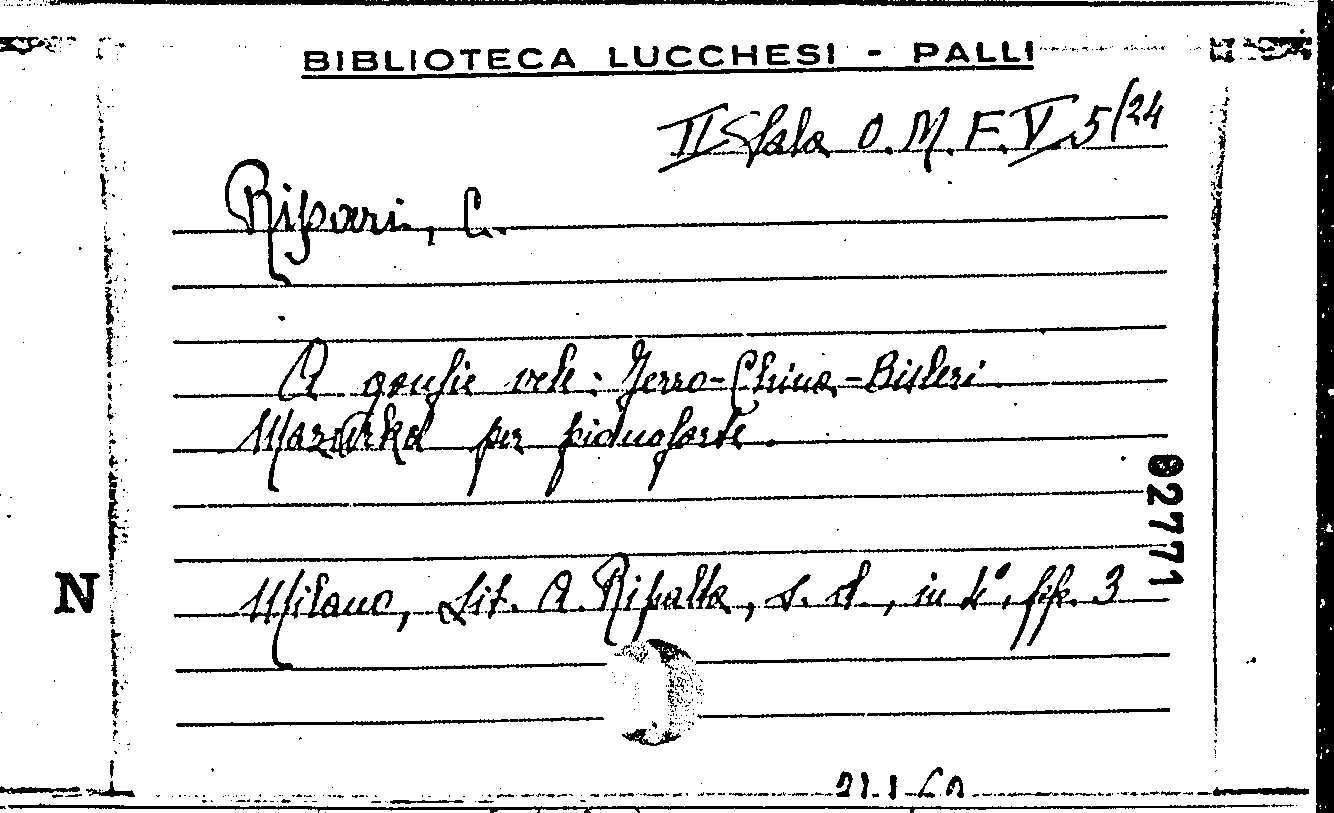 BIBLIOTECA LUCCHESI - PALLI
II Sala O. M. F. V 5/24
Ripari, C.
A gonfie vele: Ferro-China-Bisleri
Mazurka per pianoforte.
82771
N
Milano, Lit. A. Ripalta, s. d., in 4°, pp. 3